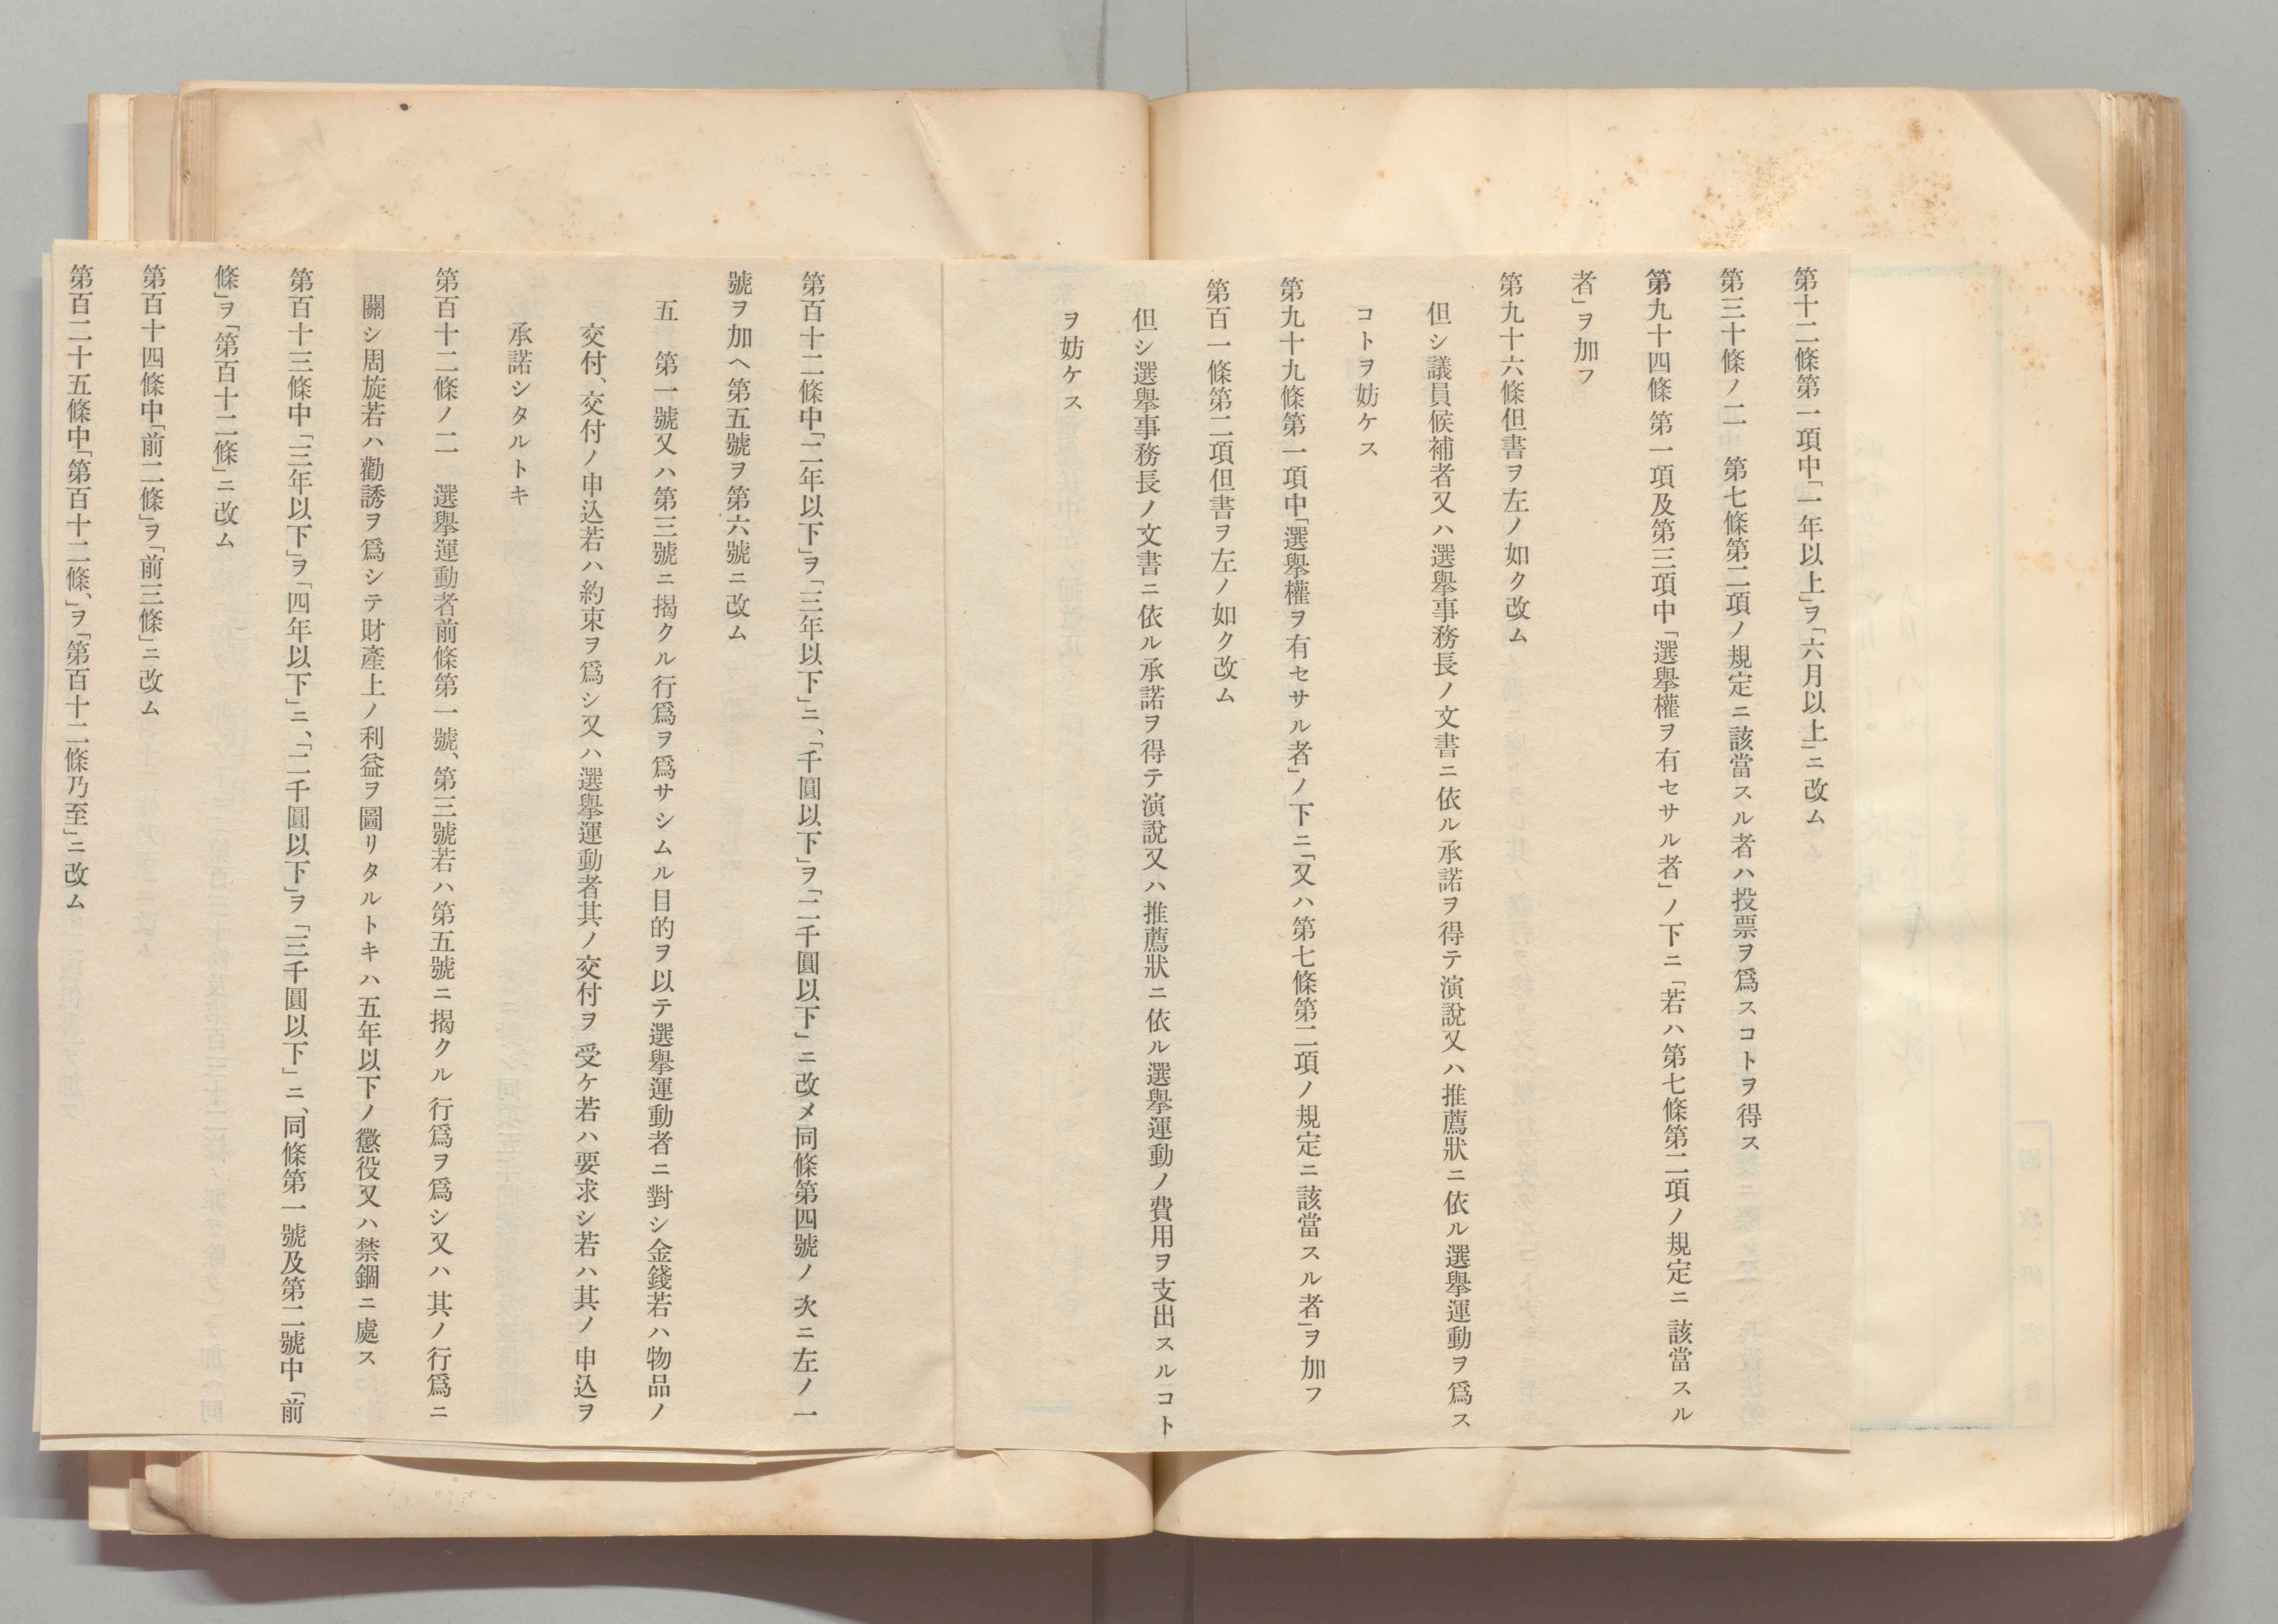 第十二條第一項中「一年以上」ヲ「六月以上」ニ改ム
第三十條ノ二　第七條第二項ノ規定ニ該當スル者ハ投票ヲ爲スコトヲ得ス
第九十四條第一項及第三項中「選擧權ヲ有セサル者」ノ下ニ「若ハ第七條第二項ノ規定ニ該當スル
者」ヲ加フ
第九十六條但書ヲ左ノ如ク改ム
但シ議員候補者又ハ選擧事務長ノ文書ニ依ル承諾ヲ得テ演說又ハ推薦狀ニ依ル選擧運動ヲ爲ス
コトヲ妨ケス
第九十九條第一項中「選擧權ヲ有セサル者」ノ下ニ「又ハ第七條第二項ノ規定ニ該當スル者」ヲ加フ
第百一條第二項但書ヲ左ノ如ク改ム
但シ選擧事務長ノ文書ニ依ル承諾ヲ得テ演說又ハ推薦狀ニ依ル選擧運動ノ費用ヲ支出スルコト
ヲ妨ケス
第百十二條中「二年以下」ヲ「三年以下」ニ、「千圓以下」ヲ「二千圓以下」ニ改メ同條第四號ノ次ニ左ノ一
號ヲ加ヘ第五號ヲ第六號ニ改ム
五　第一號又ハ第三號ニ揭クル行爲ヲ爲サシムル目的ヲ以テ選擧運動者ニ對シ金錢若ハ物品ノ
交付、交付ノ申込若ハ約束ヲ爲シ又ハ選擧運動者其ノ交付ヲ受ケ若ハ要求シ若ハ其ノ申込ヲ
承諾シタルトキ
第百十二條ノ二　選擧運動者前條第一號、第三號若ハ第五號ニ揭クル行爲ヲ爲シ又ハ其ノ行爲ニ
關シ周旋若ハ勸誘ヲ爲シテ財產上ノ利益ヲ圖リタルトキハ五年以下ノ懲役又ハ禁錮ニ處ス
第百十三條中「三年以下」ヲ「四年以下」ニ、「二千圓以下」ヲ「三千圓以下」ニ、同條第一號及第二號中「前
條」ヲ「第百十二條」ニ改ム
第百十四條中「前二條」ヲ「前三條」ニ改ム
第百二十五條中「第百十二條、」ヲ「第百十二條乃至」ニ改ム